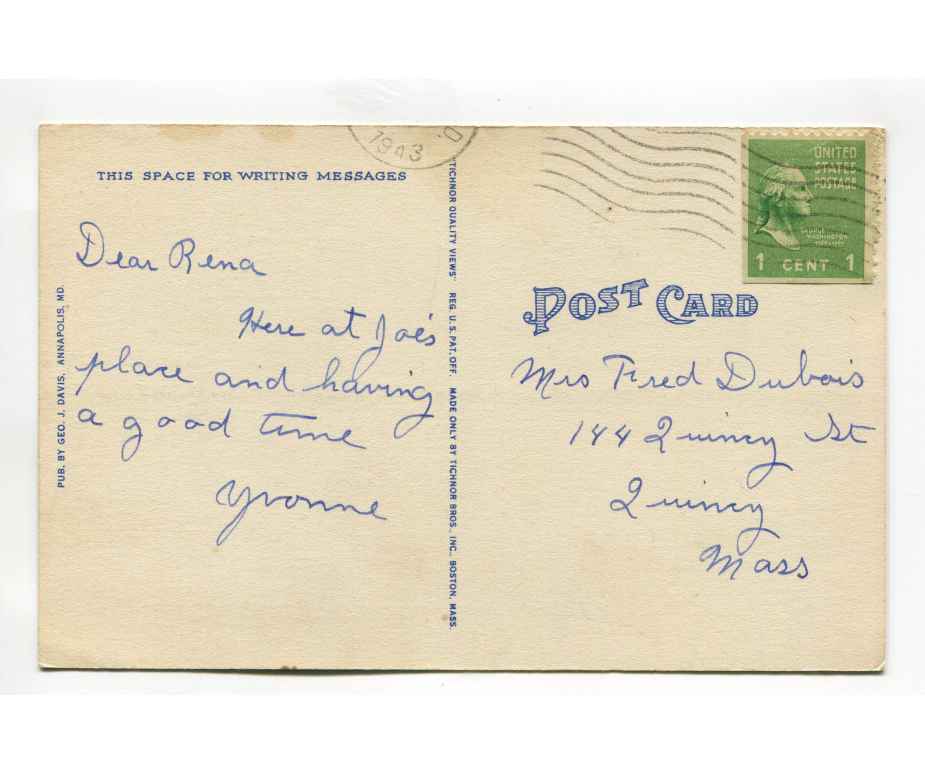 1943
THIS SPACE FOR WRITING MESSAGES
Dear Rena
Here at Joe's
place and having
a good time
Yvonne
PUB. BY GEO. J. DAVIS, ANNAPOLIS, MD.
"TICHNOR QUALITY VIEWS" REG. U.S. PAT. OFF. MADE ONLY BY TICHNOR BROS., INC., BOSTON, MASS.
UNITED
STATES
POSTAGE
GEORGE
WASHINGTON
1 CENT 1
POST CARD
Mrs Fred Dubois
144 Quincy St
Quincy
Mass